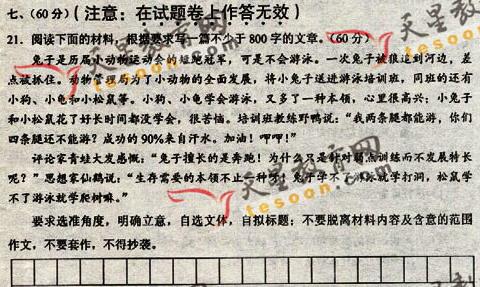 七、(60分)(注意：在试题卷上作答无效)
21. 阅读下面的材料，根据要求写一篇不少于800字的文章。(60分)
兔子是历届小动物运动会的短跑冠军，可是不会游泳。一次兔子被狼追到河边，差
点被抓住。动物管理局为了小动物的全面发展，将小兔子送进游泳培训班，同班的还有
小狗、小龟和小松鼠等。小狗、小龟学会游泳，又多了一种本领，心里很高兴；小兔子
和小松鼠花了好长时间都没学会，很苦恼。培训班教练野鸭说：“我两条腿都能游，你们
四条腿还不能游？成功的90%来自汗水。加油！呷呷！”
评论家青蛙大发感慨：“兔子擅长的是奔跑！为什么只是针对弱点训练而不发展特长
呢？”思想家仙鹤说：“生存需要的本领不止一种呀！兔子学不了游泳就学打洞，松鼠学
不了游泳就学爬树嘛。”
要求选准角度，明确立意，自选文体，自拟标题；不要脱离材料内容及含意的范围
作文，不要套作，不得抄袭。
天星教育网
tesoon.com
天星教育网
tesoon.com
天星教育网
tesoon.com